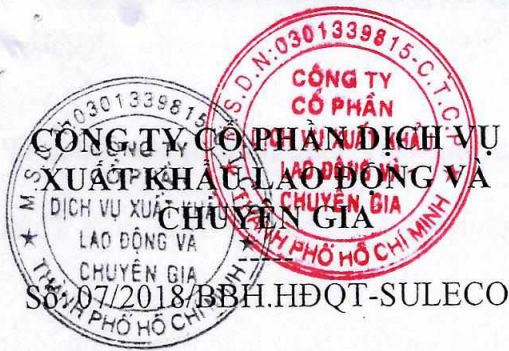 CÔNG TY CỔ PHẦN DỊCH VỤ
XUẤT KHẨU LAO ĐỘNG VÀ
CHUYÊN GIA
-----
Số: 07/2018/BBH.HĐQT-SULECO
M.S.D.N:0301339815-C.T.C.P
CÔNG TY
CỔ PHẦN
DỊCH VỤ XUẤT KHẨU
LAO ĐỘNG VÀ
CHUYÊN GIA
THÀNH PHỐ HỒ CHÍ MINH
0301339815
CÔNG TY
CỔ PHẦN
DỊCH VỤ XUẤT KHẨU
LAO ĐỘNG VÀ
CHUYÊN GIA
THÀNH PHỐ HỒ CHÍ MINH